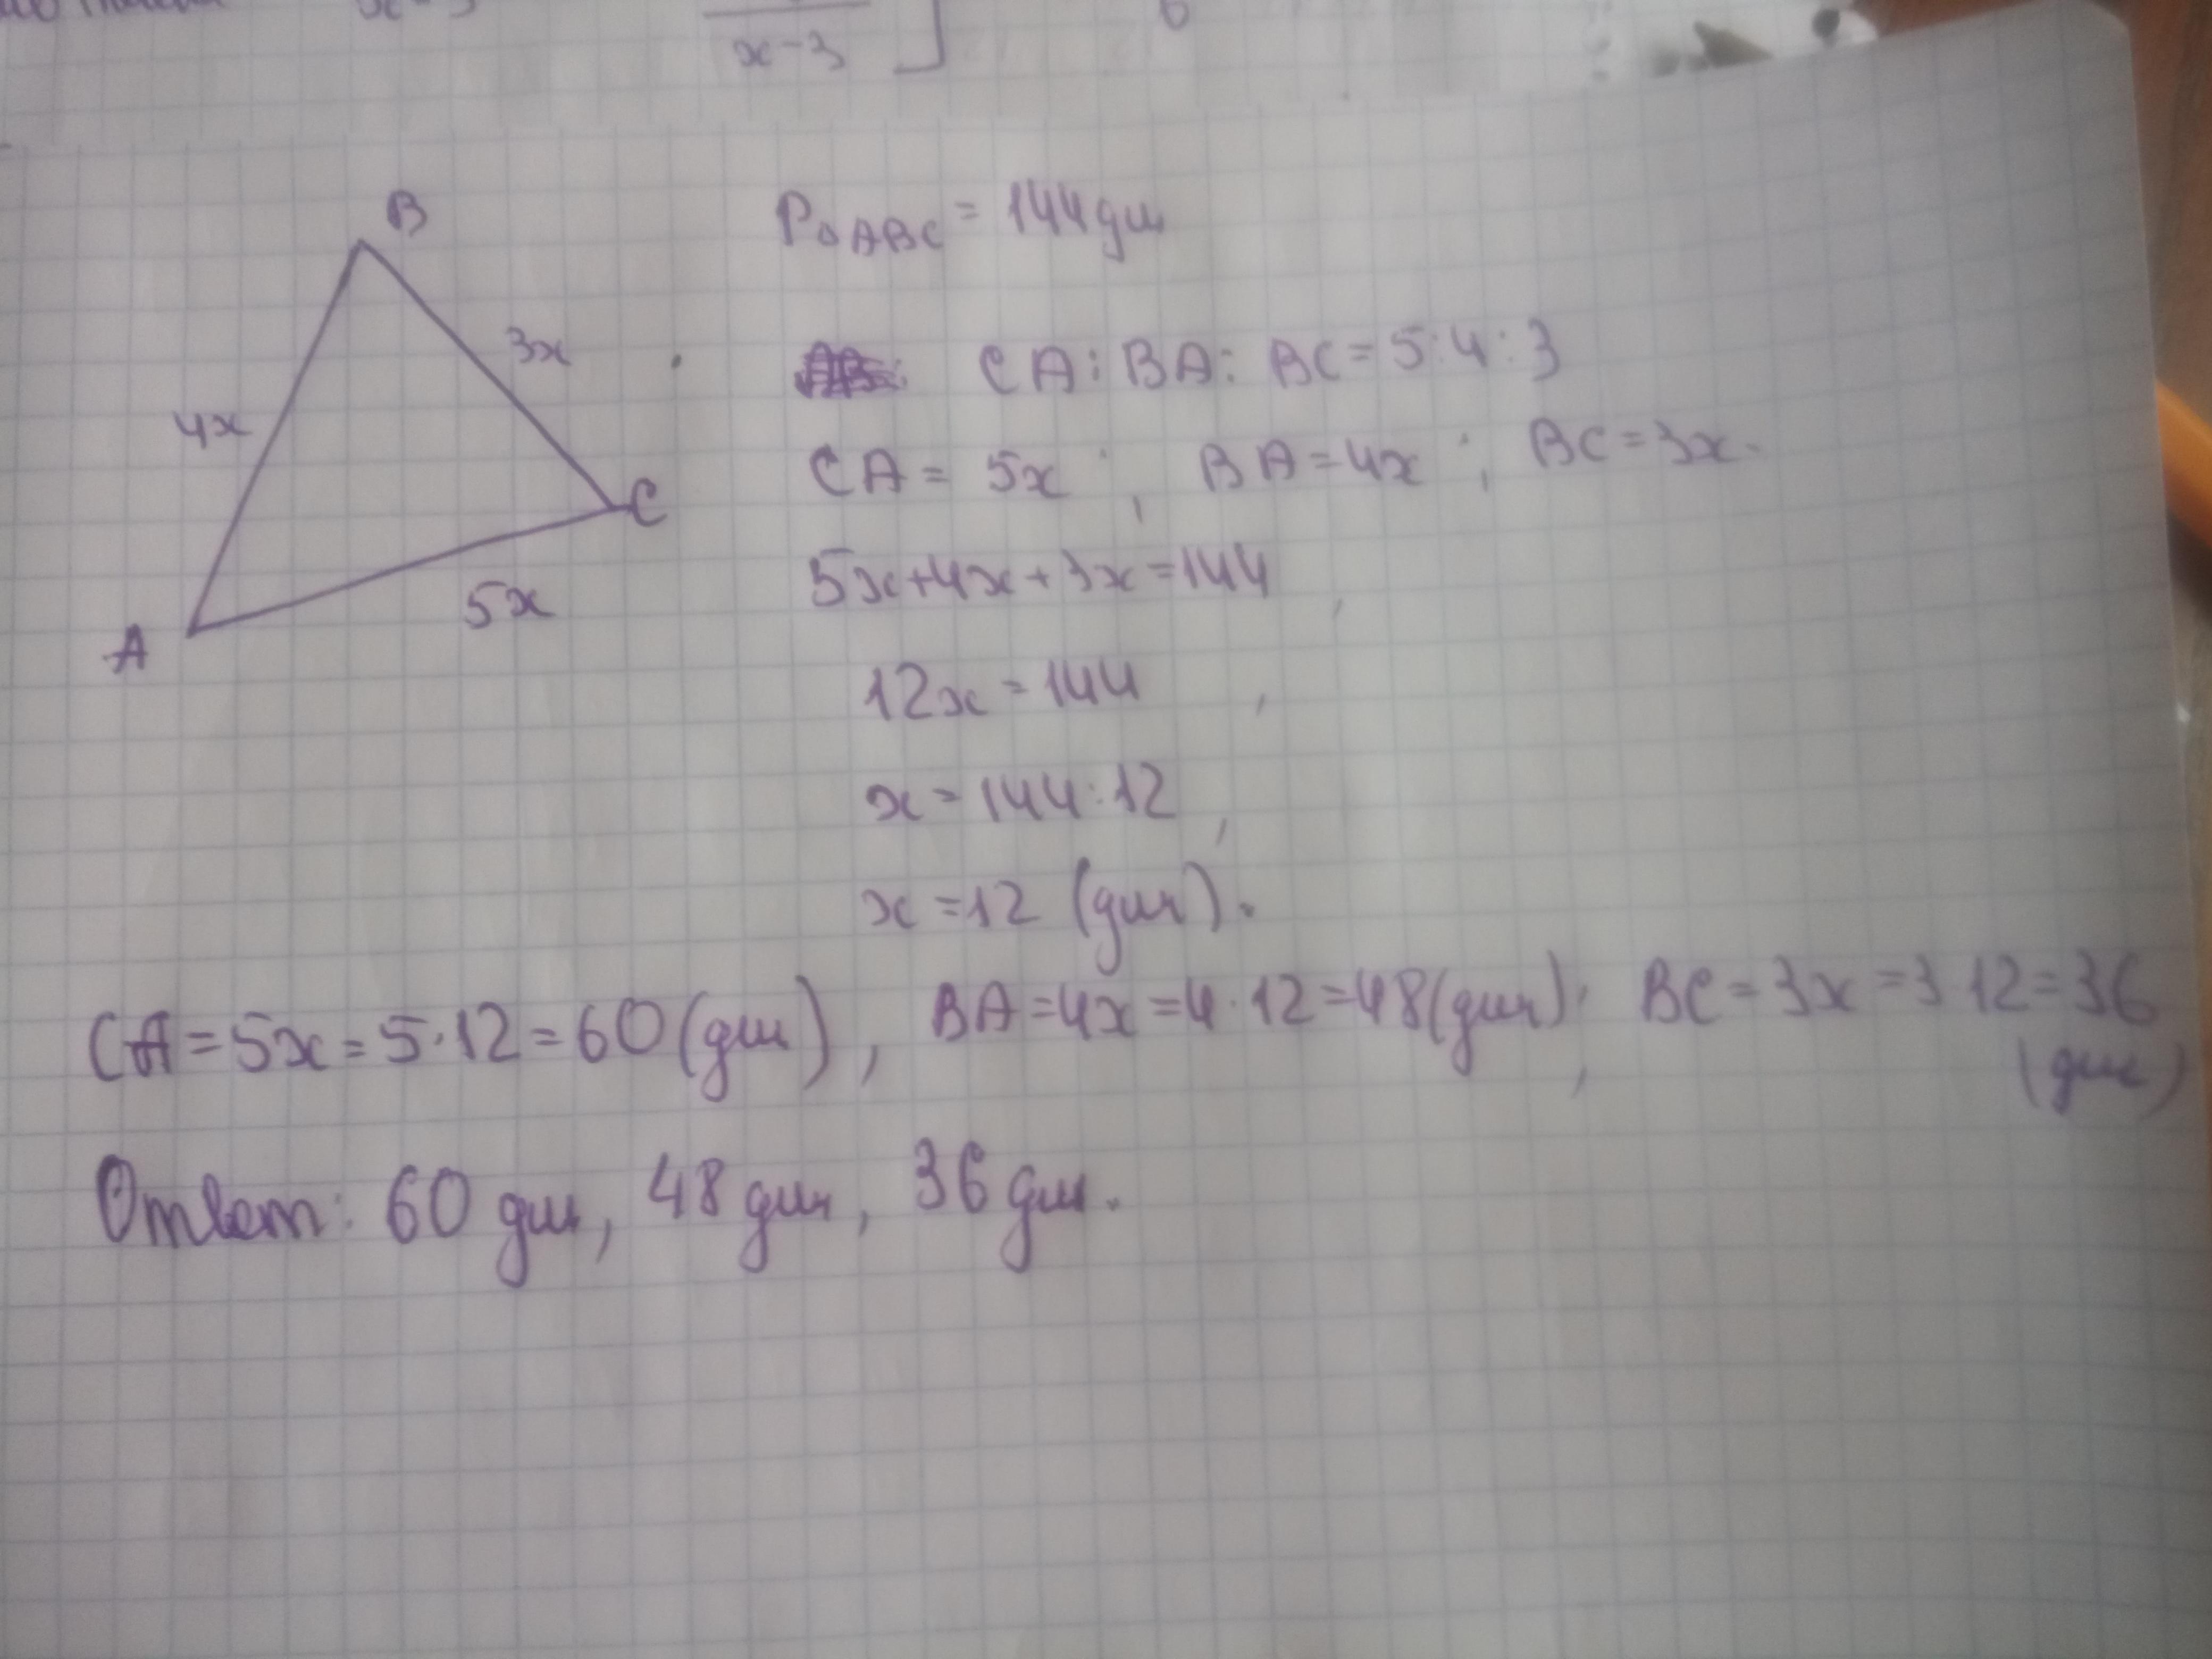 x-3
B
P△ABC = 144 дм
3x
CA : BA : BC = 5 : 4 : 3
4x
CA = 5x ; BA = 4x ; BC = 3x.
C
5x + 4x + 3x = 144,
5x
A
12x = 144,
x = 144 : 12,
x = 12 (дм).
CA = 5x = 5 · 12 = 60 (дм), BA = 4x = 4 · 12 = 48 (дм); BC = 3x = 3 12 = 36
(дм)
Ответ: 60 дм, 48 дм, 36 дм.